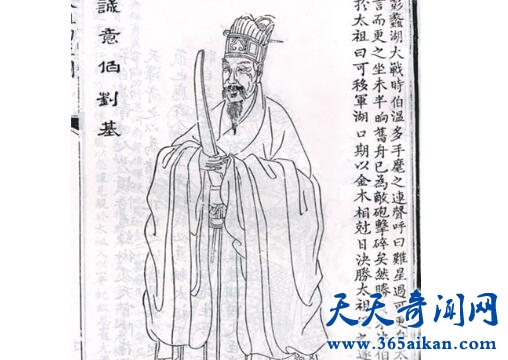 彭蠡湖大戰時伯溫多手麾之連聲呼曰難星過可更
言而更之坐未半晌舊舟已為敵砲擊碎矣然勝決伯
於太祖曰可移軍湖口期以金木相尅日決勝太祖之遂
誠意伯劉基
天天奇闻网
www.365aikan.com